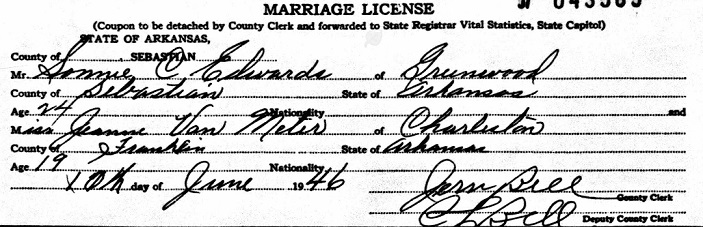 MARRIAGE LICENSE
(Coupon to be detached by County Clerk and forwarded to State Registrar Vital Statistics, State Capitol)
STATE OF ARKANSAS,
County of SEBASTIAN
Mr. Lonnie C Edwards of Greenwood
County of Sebastian State of Arkansas
Age 24 Nationality and
Miss Jeanne Van Meter of Charleston
County of Franklin State of Arkansas
Age 19 Nationality
10th day of June 1946
Jern Bell County Clerk
C L Bell Deputy County Clerk